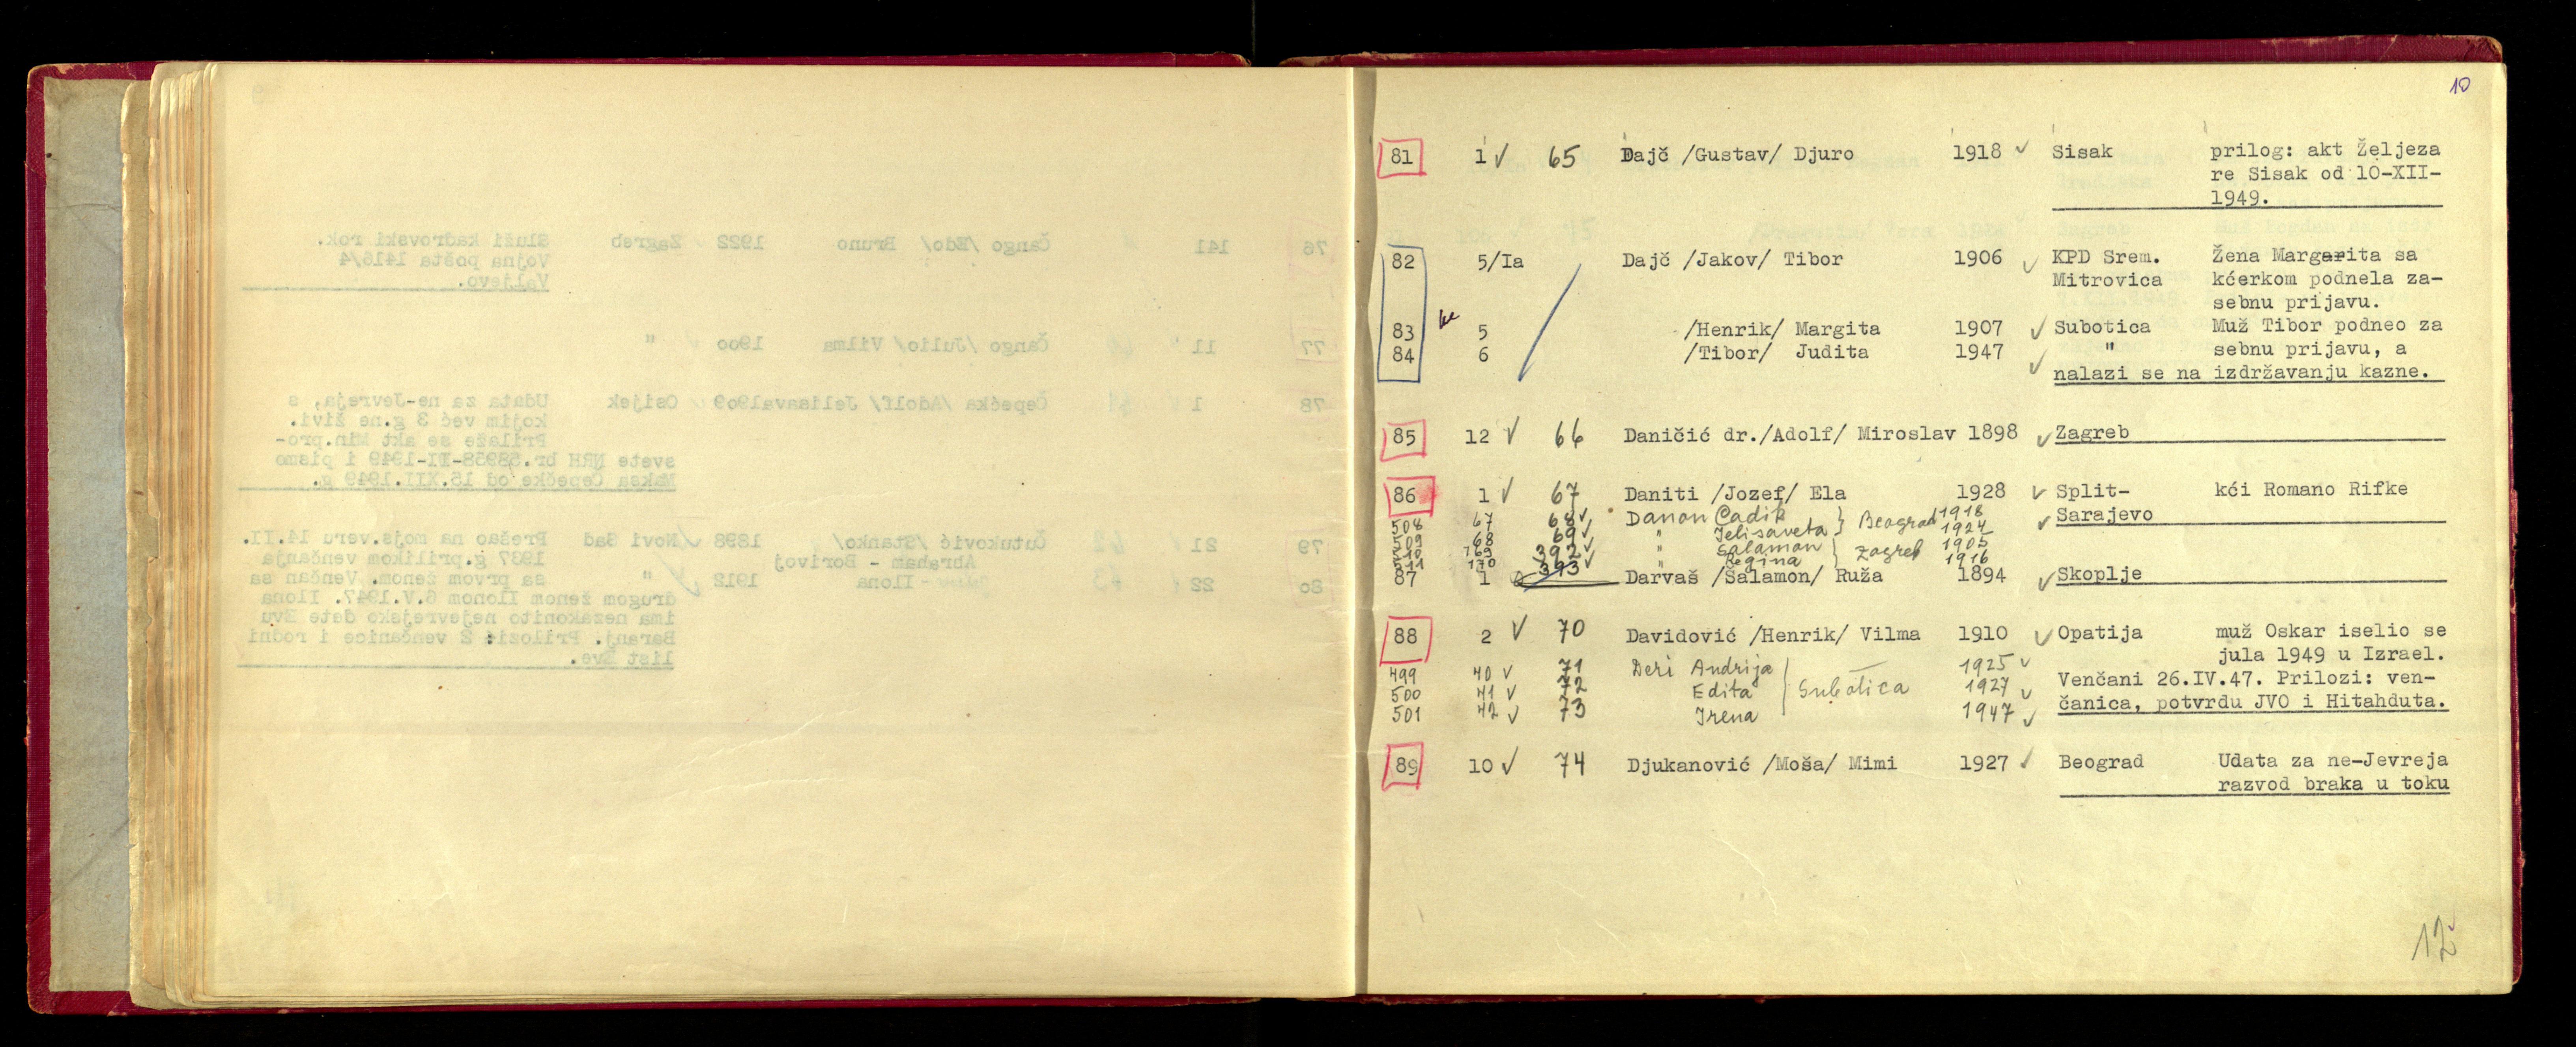 10
81 1 ✓ 65 Dajč /Gustav/ Djuro 1918 ✓ Sisak prilog: akt Željeza
re Sisak od 10-XII-
1949.
82 5/Ia Dajč /Jakov/ Tibor 1906 ✓ KPD Srem. Žena Margarita sa
Mitrovica kćerkom podnela za-
sebnu prijavu.
83 5 /Henrik/ Margita 1907 ✓ Subotica Muž Tibor podneo za
84 6 /Tibor/ Judita 1947 ✓ " sebnu prijavu, a
nalazi se na izdržavanju kazne.
85 12 ✓ 66 Daničić dr./Adolf/ Miroslav 1898 ✓ Zagreb
86 1 ✓ 67 Daniti /Jozef/ Ela 1928 ✓ Split- kći Romano Rifke
508 67 68 ✓ Danon Cadik } Beograd 1918 ✓ Sarajevo
509 68 69 ✓ " Jelisaveta 1924
510 169 392 ✓ " Salamon } Zagreb 1905
511 170 393 ✓ " Regina 1916
87 1 Darvaš /Šalamon/ Ruža 1894 ✓ Skoplje
88 2 ✓ 70 Davidović /Henrik/ Vilma 1910 ✓ Opatija muž Oskar iselio se
jula 1949 u Izrael.
499 40 ✓ 71 Deri Andrija 1925 ✓
500 41 ✓ 72 Edita Subotica 1927 ✓ Venčani 26.IV.47. Prilozi: ven-
501 42 ✓ 73 Irena 1947 ✓ čanica, potvrdu JVO i Hitahduta.
89 10 ✓ 74 Djukanović /Moša/ Mimi 1927 ✓ Beograd Udata za ne-Jevreja
razvod braka u toku
12